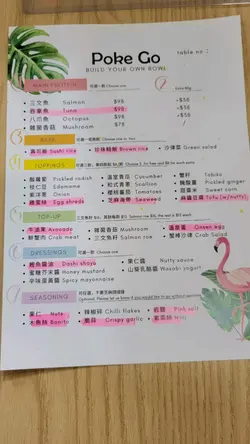 Poke Go
BUILD YOUR OWN BOWL
table no :
MAIN PROTEIN 可選一款 Choose one
三文魚 Salmon $98 +$58
吞拿魚 Tuna $98 +$58
八爪魚 Octopus $98 +$58
雜菌香菇 Mushroom $78
BASE
壽司飯 Sushi rice 珍珠糙米 Brown rice 沙律菜 Green salad
TOPPINGS
Pickled radish 溫室青瓜 Cucumber 蟹籽 Tobiko
枝豆 Edamame 和式青蔥 Scallion 酸薑 Pickled ginger
Onion 櫻桃番茄 Tomatoes 粟米 Sweet corn
Egg shreds 芝麻海帶 Seaweed 麻醬豆腐 Tofu (w/nuts)
TOP-UP
牛油果 Avocado 雜菌 Mushroom 溫泉蛋 Onsen egg
Crab meat 三文魚籽 Salmon roe 蟹棒沙律 Crab Salad
DRESSINGS 可選一款 Choose one
鰹魚醬油 Dashi shoyu 果仁醬 Nutty sauce
蜜糖芥末醬 Honey mustard 山葵乳酪醬 Wasabi yogurt
辛辣蛋黃醬 Spicy mayonnaise
SEASONING
果仁 Nuts 辣椒碎 Chili flakes Pink salt
木魚絲 Bonito 脆蒜 Crispy garlic 紫菜絲 Nori